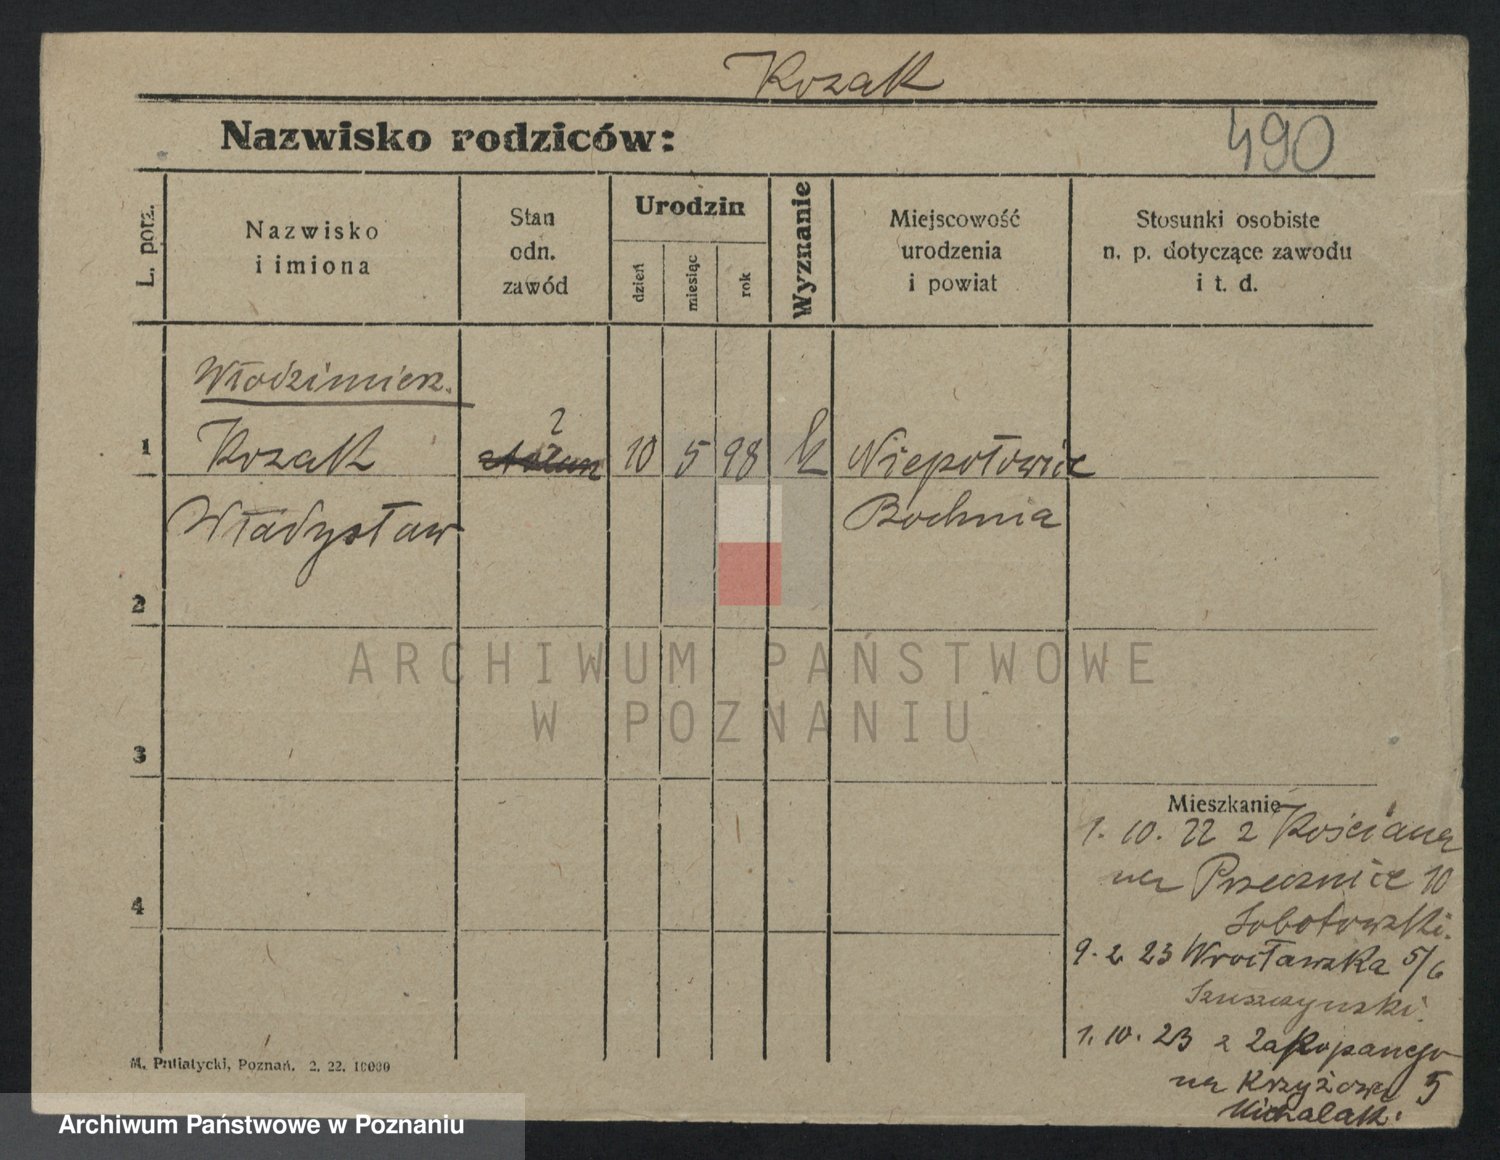 Kozak
Nazwisko rodziców:
490
L. porz.
Nazwisko
i imiona
Stan
odn.
zawód
Urodzin
dzień
miesiąc
rok
Wyznanie
Miejscowość
urodzenia
i powiat
Stosunki osobiste
n. p. dotyczące zawodu
i t. d.
Włodzimierz.
?
1 Kozak 10 5 98 k Niepołowice
Władysław Bochnia
2
ARCHIWUM PAŃSTWOWE
W POZNANIU
3
Mieszkanie
1. 10. 22 z Kościana
na Przecznice 10
4
Sobotowski.
9. 2 23 Wrocławska 5/6
Szuszczynski.
1. 10. 23 z Zakopanego
na Krzyżowa 5
Michalak.
M. Putiatycki, Poznań. 2. 22. 10000
Archiwum Państwowe w Poznaniu